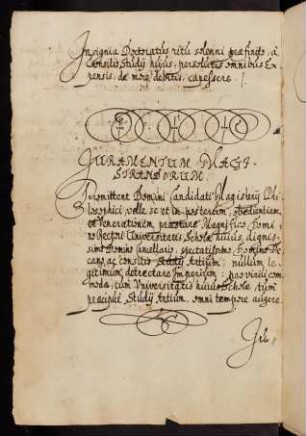 Insignia Doctoratus ritu solenni præfinito à
Consilio Studij huius, persolutis omnibus Ex=
pensis, de more debitis, capessere.
IURAMENTUM MAGI-
STRANDORUM.
Promittent Domini Candidati Magisterij Phi
losophici velle se et in posterum, obedientiam
et Venerationem præstare Magnifico Domi=
no Rectori Universitatis Scholæ huius, dignis=
simo Domino Cancellario, spectabili Domino De
cano, ac Consilio Studij Artium: nullum le=
gitimum detrectare Imperium: pro virili com=
moda, cum Universitatis huius Scholæ, tum
præcipuè Studij Artium, omni tempore augere.